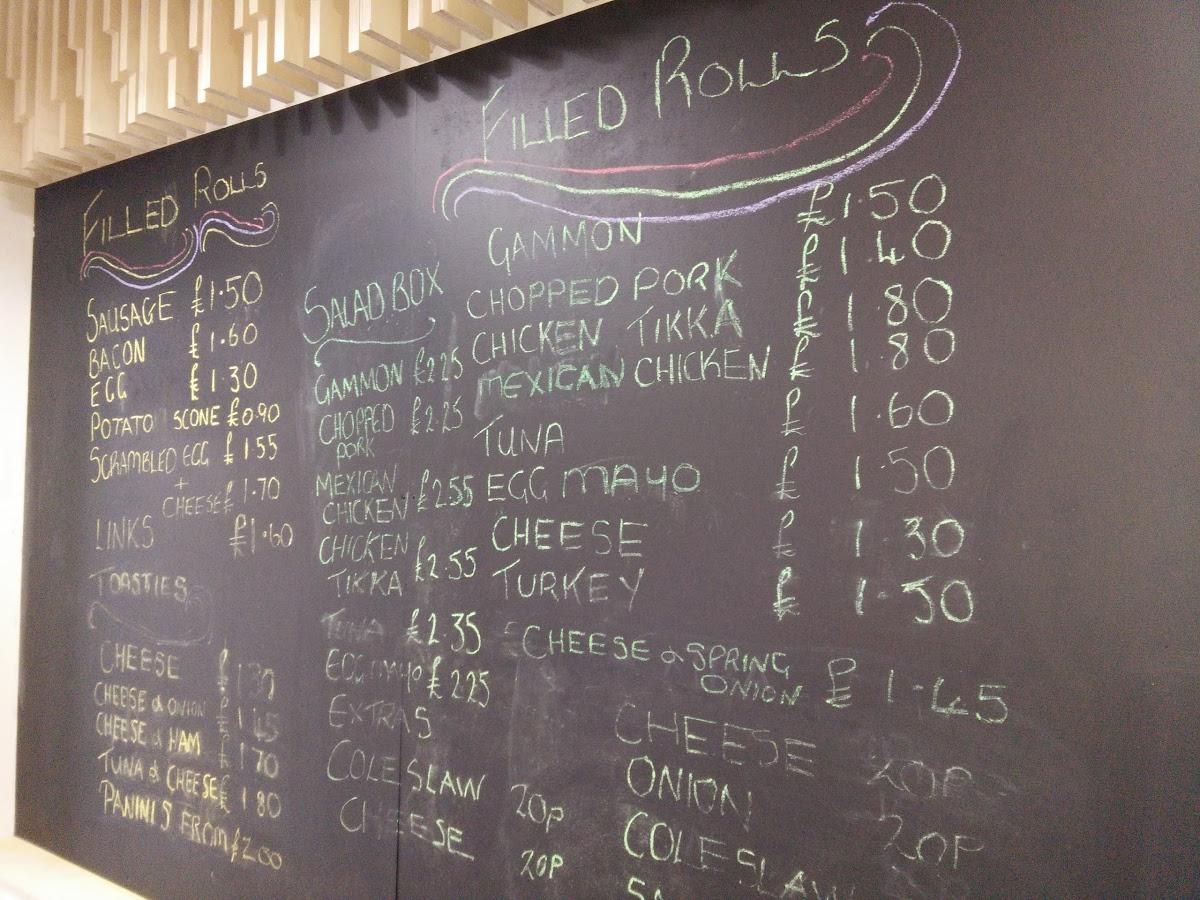 FILLED ROLLS
SAUSAGE £1.50
BACON £1.60
EGG £1.30
POTATO SCONE £0.90
SCRAMBLED EGG £1.55
+
CHEESE £1.70
LINKS £1.60
TOASTIES
CHEESE £1.30
CHEESE & ONION £1.45
CHEESE & HAM £1.70
TUNA & CHEESE £1.80
PANINI'S FROM £2.00
SALAD BOX
GAMMON £2.25
CHOPPED £2.25
PORK
MEXICAN
CHICKEN £2.55
CHICKEN
TIKKA £2.55
TUNA £2.35
EGG MAYO £2.25
EXTRAS
COLESLAW 20P
CHEESE 20P
FILLED ROLLS
GAMMON £1.50
CHOPPED PORK £1.40
CHICKEN TIKKA £1.80
MEXICAN CHICKEN £1.80
TUNA £1.60
EGG MAYO £1.50
CHEESE £1.30
TURKEY £1.50
CHEESE & SPRING
ONION £1.45
CHEESE 20P
ONION 20P
COLESLAW